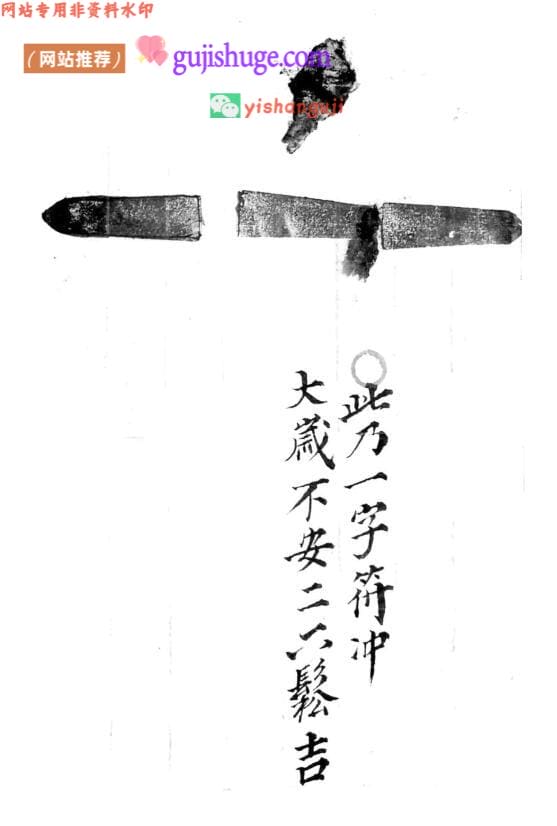 网站专用非资料水印
（网站推荐）
gujishuge.com
yishanguji
此乃一字符冲
大歲不安二六鬆吉